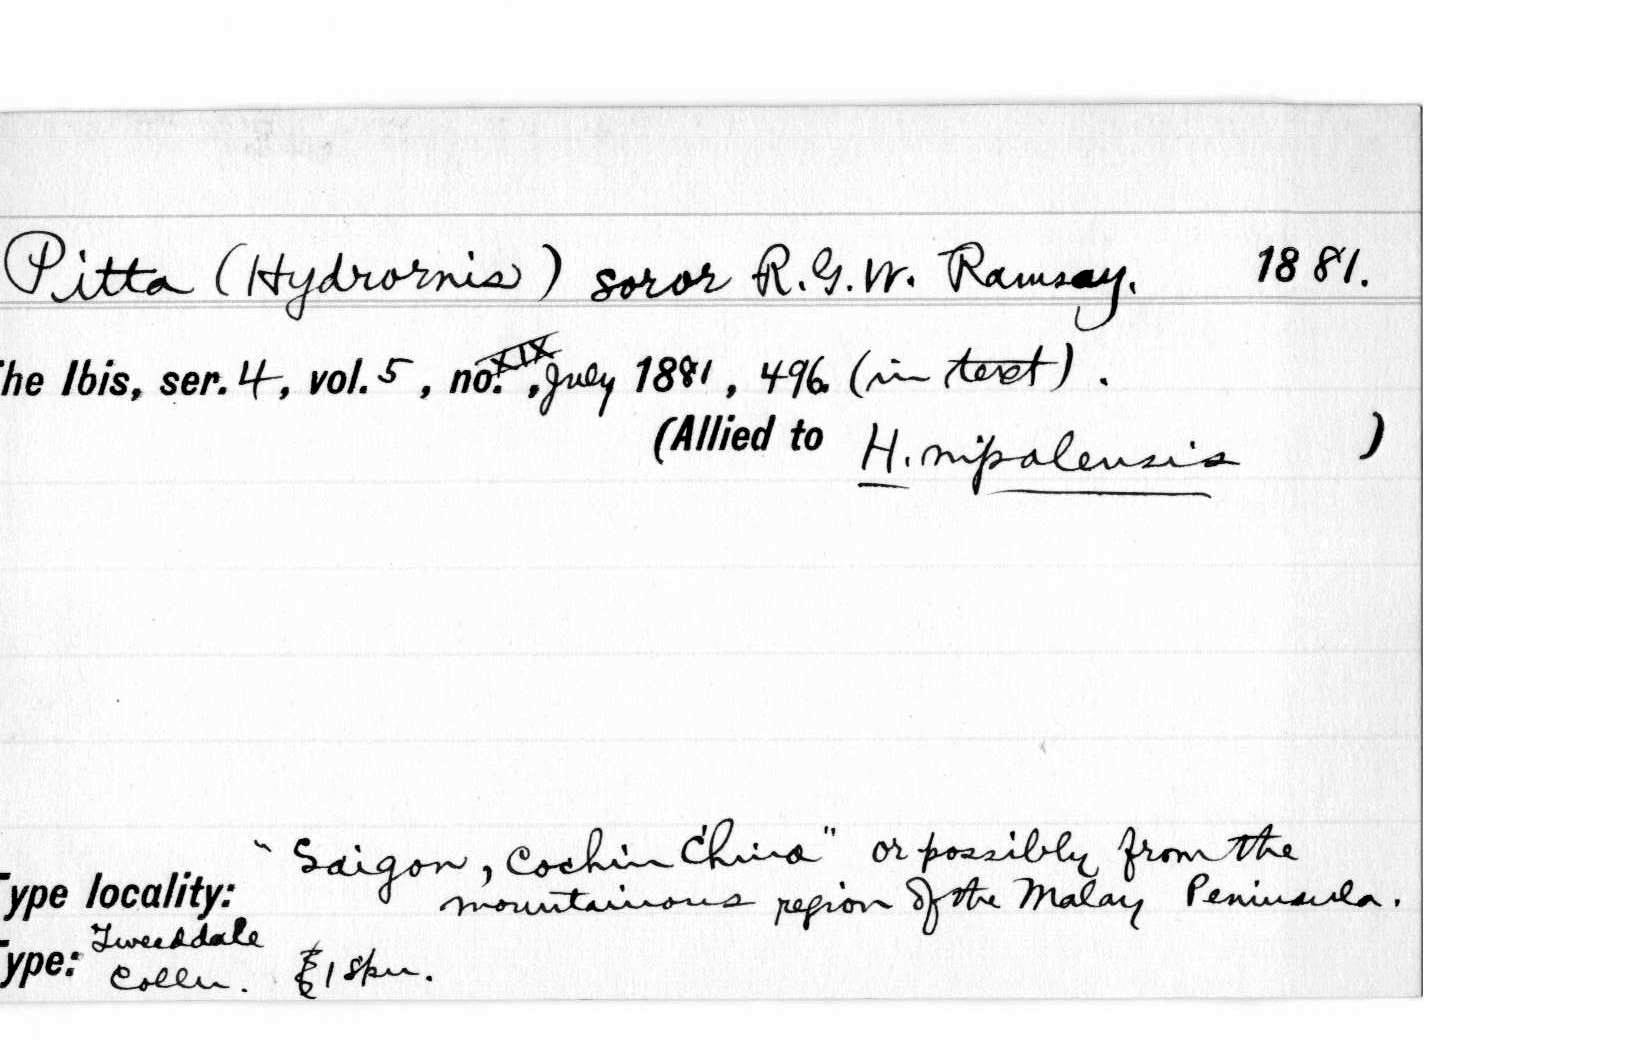 Pitta (Hydrornis) soror R.G.W. Ramsay. 1881.
he Ibis, ser. 4, vol. 5, no. XIX, July 1881, 496 (in text).
(Allied to H. nipalensis )
"Saigon, Cochin China" or possibly from the
ype locality: mountainous region of the Malay Peninsula.
Tweeddale
ype: Colln. 1 spm.